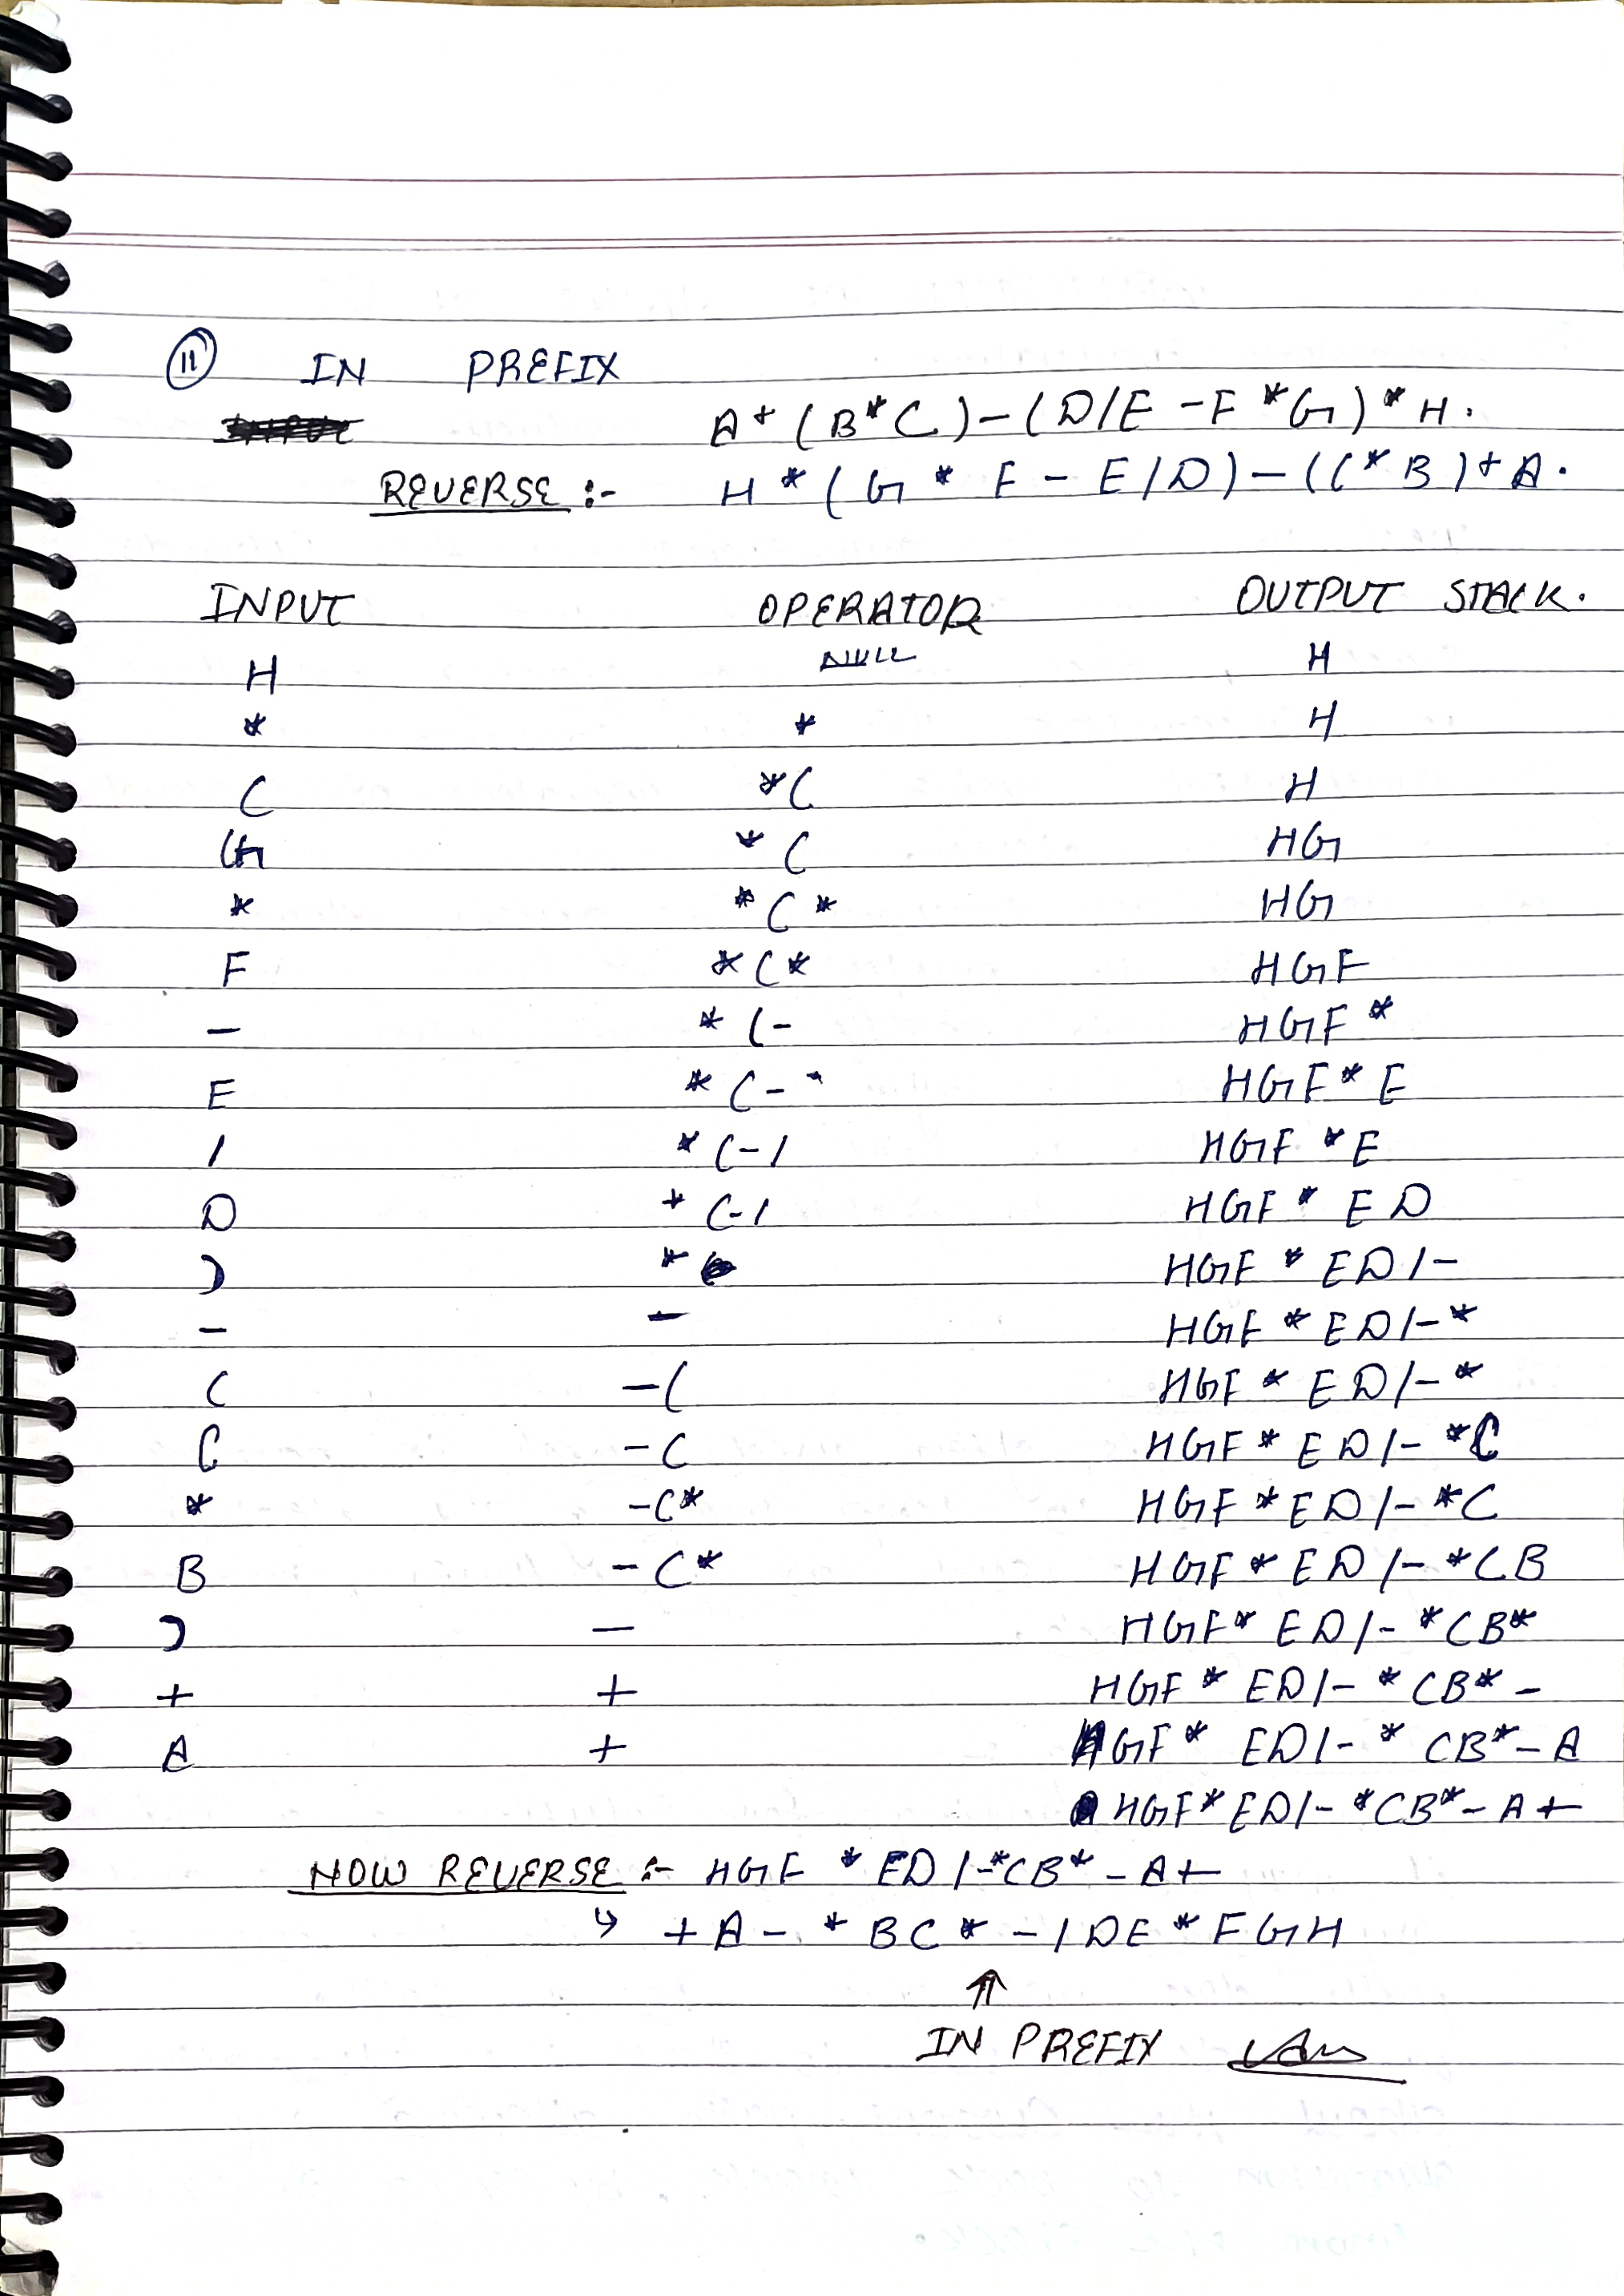 (11) IN PREFIX
A + (B * C) - (D / E - F * G) * H.
REVERSE :- H * (G * F - E / D) - ((* B) + A.
INPUT OPERATOR OUTPUT STACK.
H NULL H
* * H
( *( H
G *( HG
* *(* HG
F *(* HGF
- *(- HGF*
E *(- HGF*E
/ *(-/ HGF*E
D *(-/ HGF*ED
) * HGF*ED/-
- - HGF*ED/-*
( -( HGF*ED/-*
C -( HGF*ED/-*C
* -(* HGF*ED/-*C
B -(* HGF*ED/-*CB
) - HGF*ED/-*CB*
+ + HGF*ED/-*CB*-
A + HGF*ED/-*CB*-A
HGF*ED/-*CB*-A+
NOW REVERSE :- HGF*ED/-*CB*-A+
↳ +A-*BC*-/DE*FGH
⇑
IN PREFIX